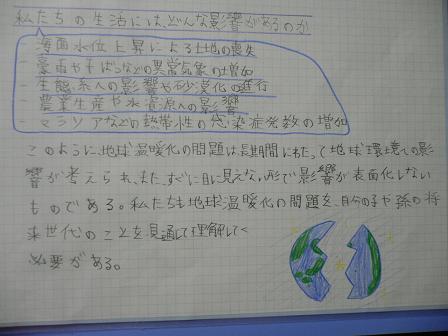 私たちの生活には、どんな影響があるのか
- 海面水位上昇による土地の喪失
- 豪雨や干ばつなどの異常気象の増加
- 生態系への影響や砂漠化の進行
- 農業生産や水資源への影響
- マラリアなどの熱帯性の感染症発数の増加
このように、地球温暖化の問題は、長期間にわたって地球環境への影
響が考えられ、また、すぐに目に見えない形で影響が表面化しない
ものである。私たちも地球温暖化の問題を、自分の子や孫の将
来世代のことを見通して理解してく
必要がある。